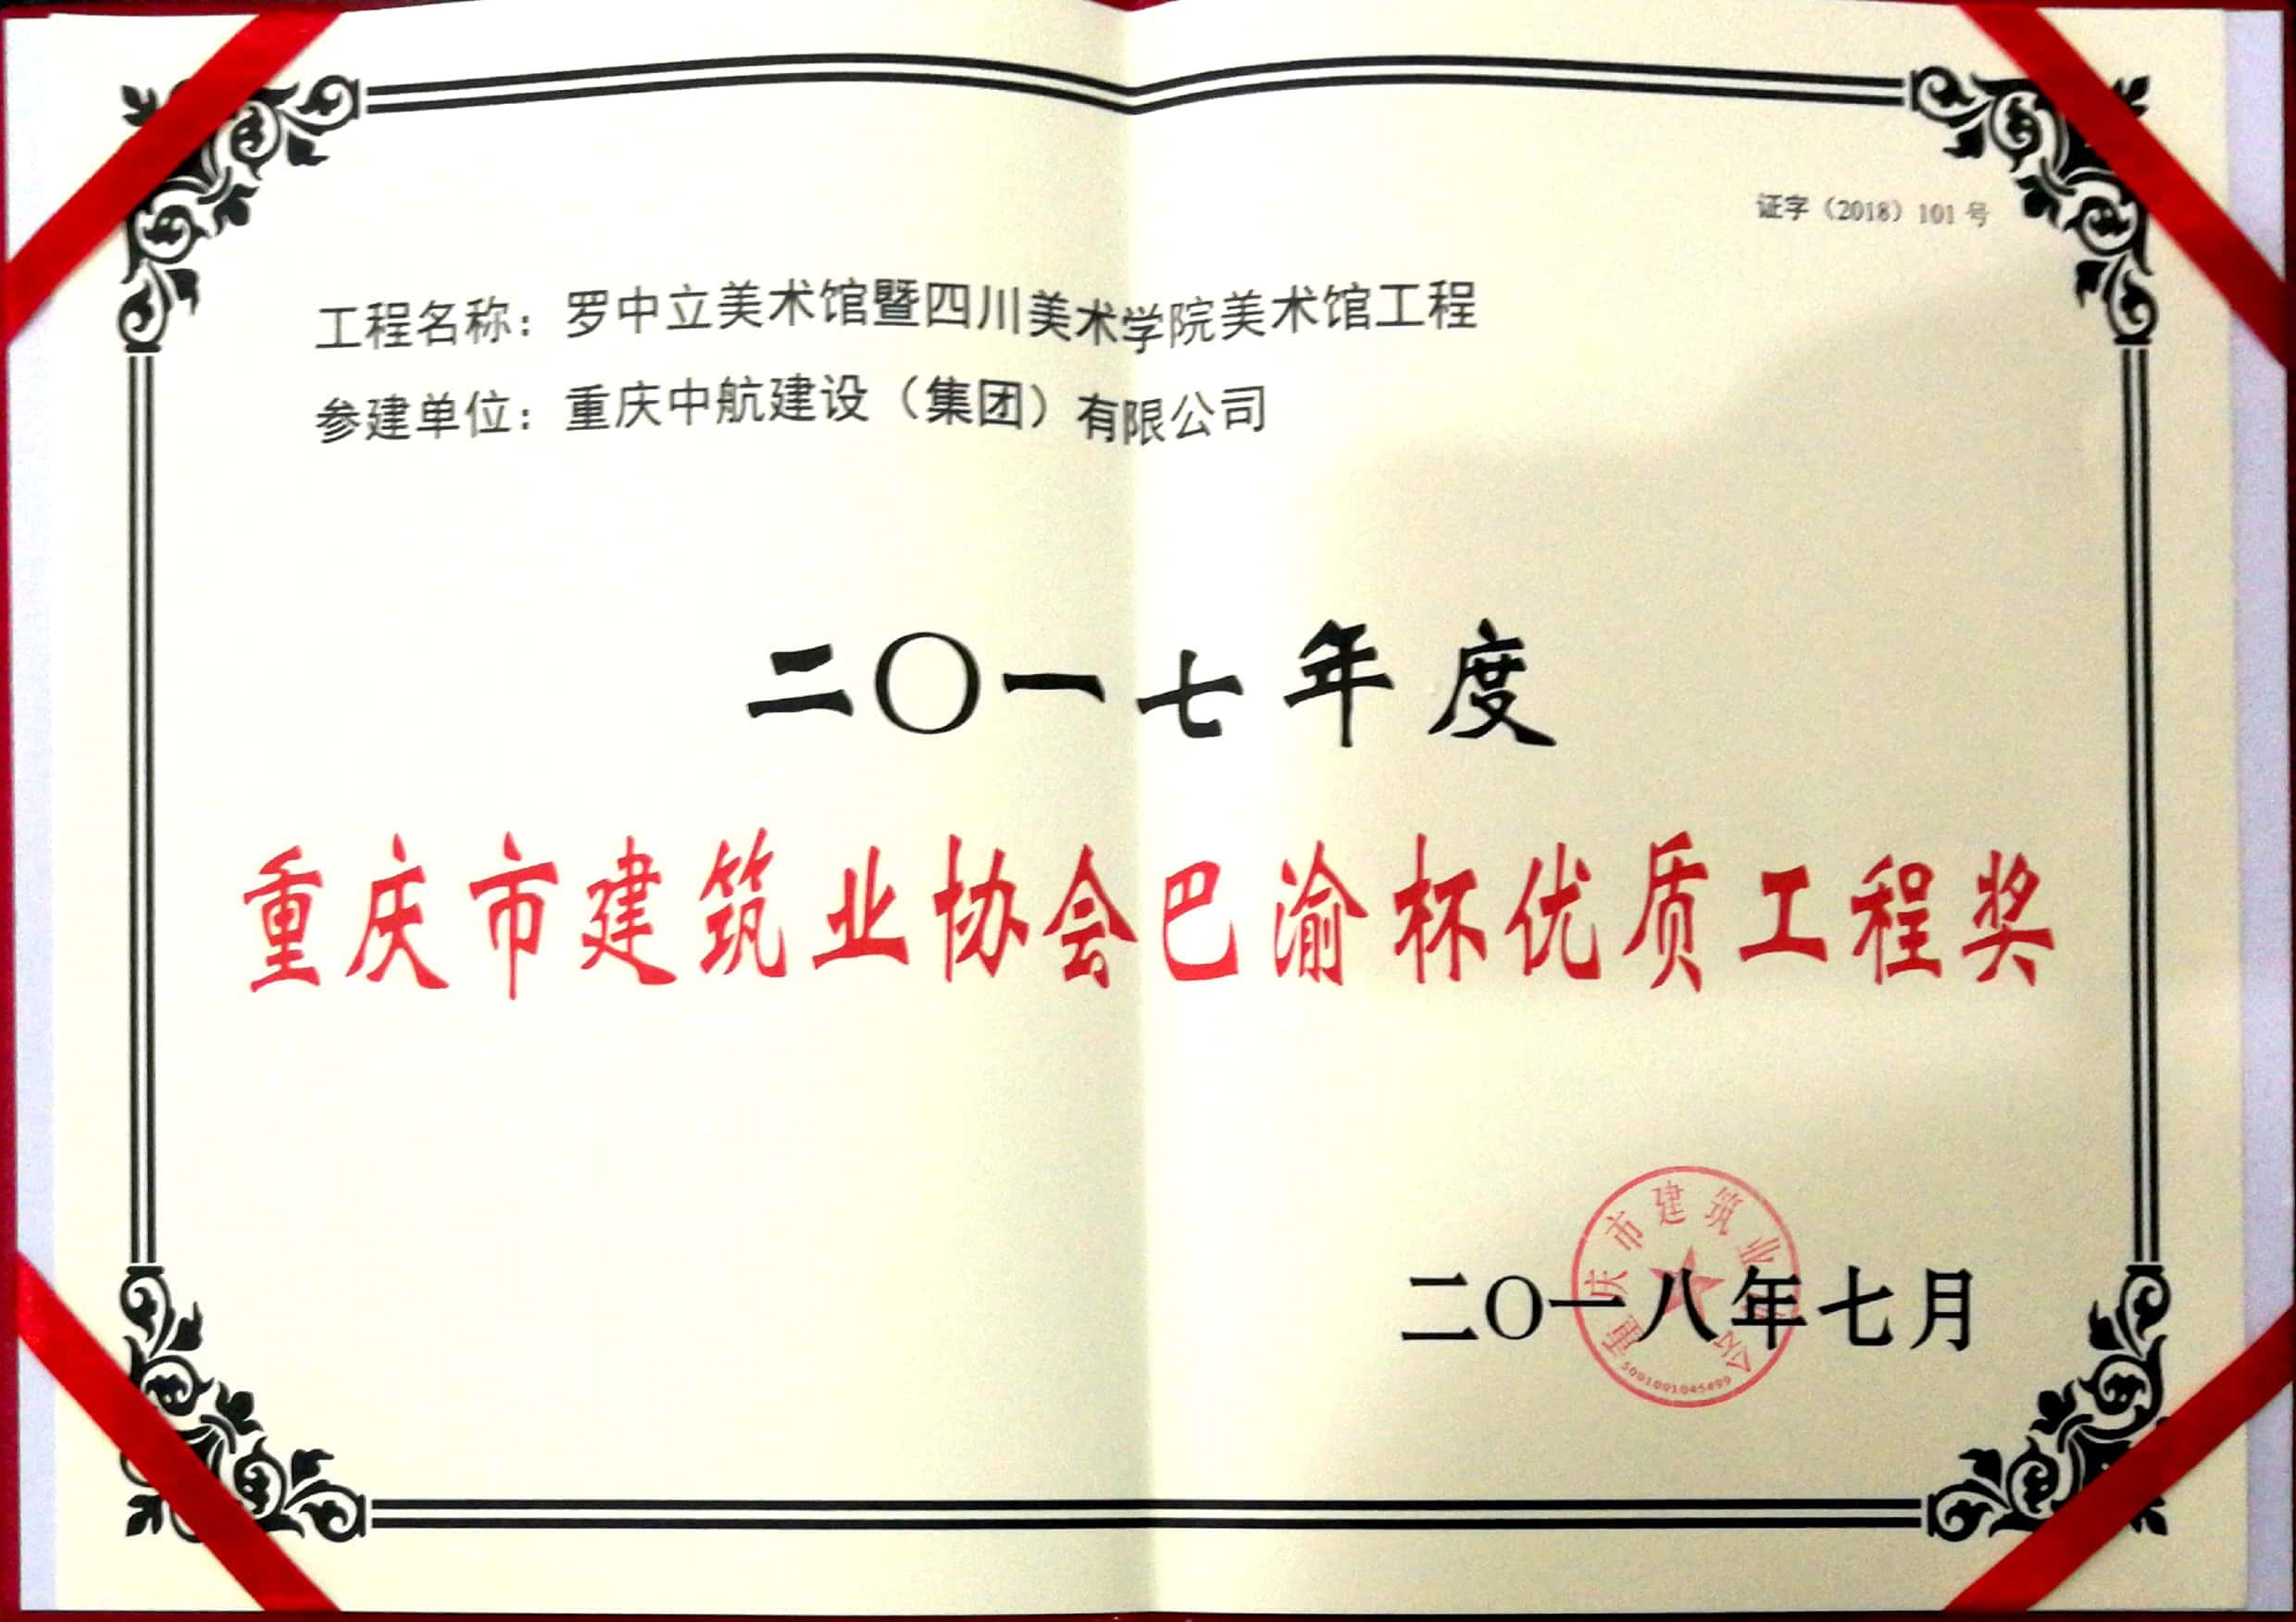 证字（2018）101 号
工程名称：罗中立美术馆暨四川美术学院美术馆工程
参建单位：重庆中航建设（集团）有限公司
二〇一七年度
重庆市建筑业协会巴渝杯优质工程奖
重庆市建筑业协会
二〇一八年七月